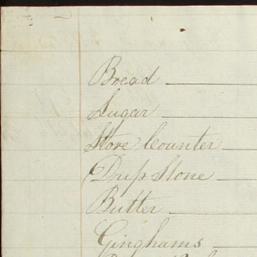 Bread
Sugar
Store Counter
Drip Stone
Butter
Ginghams